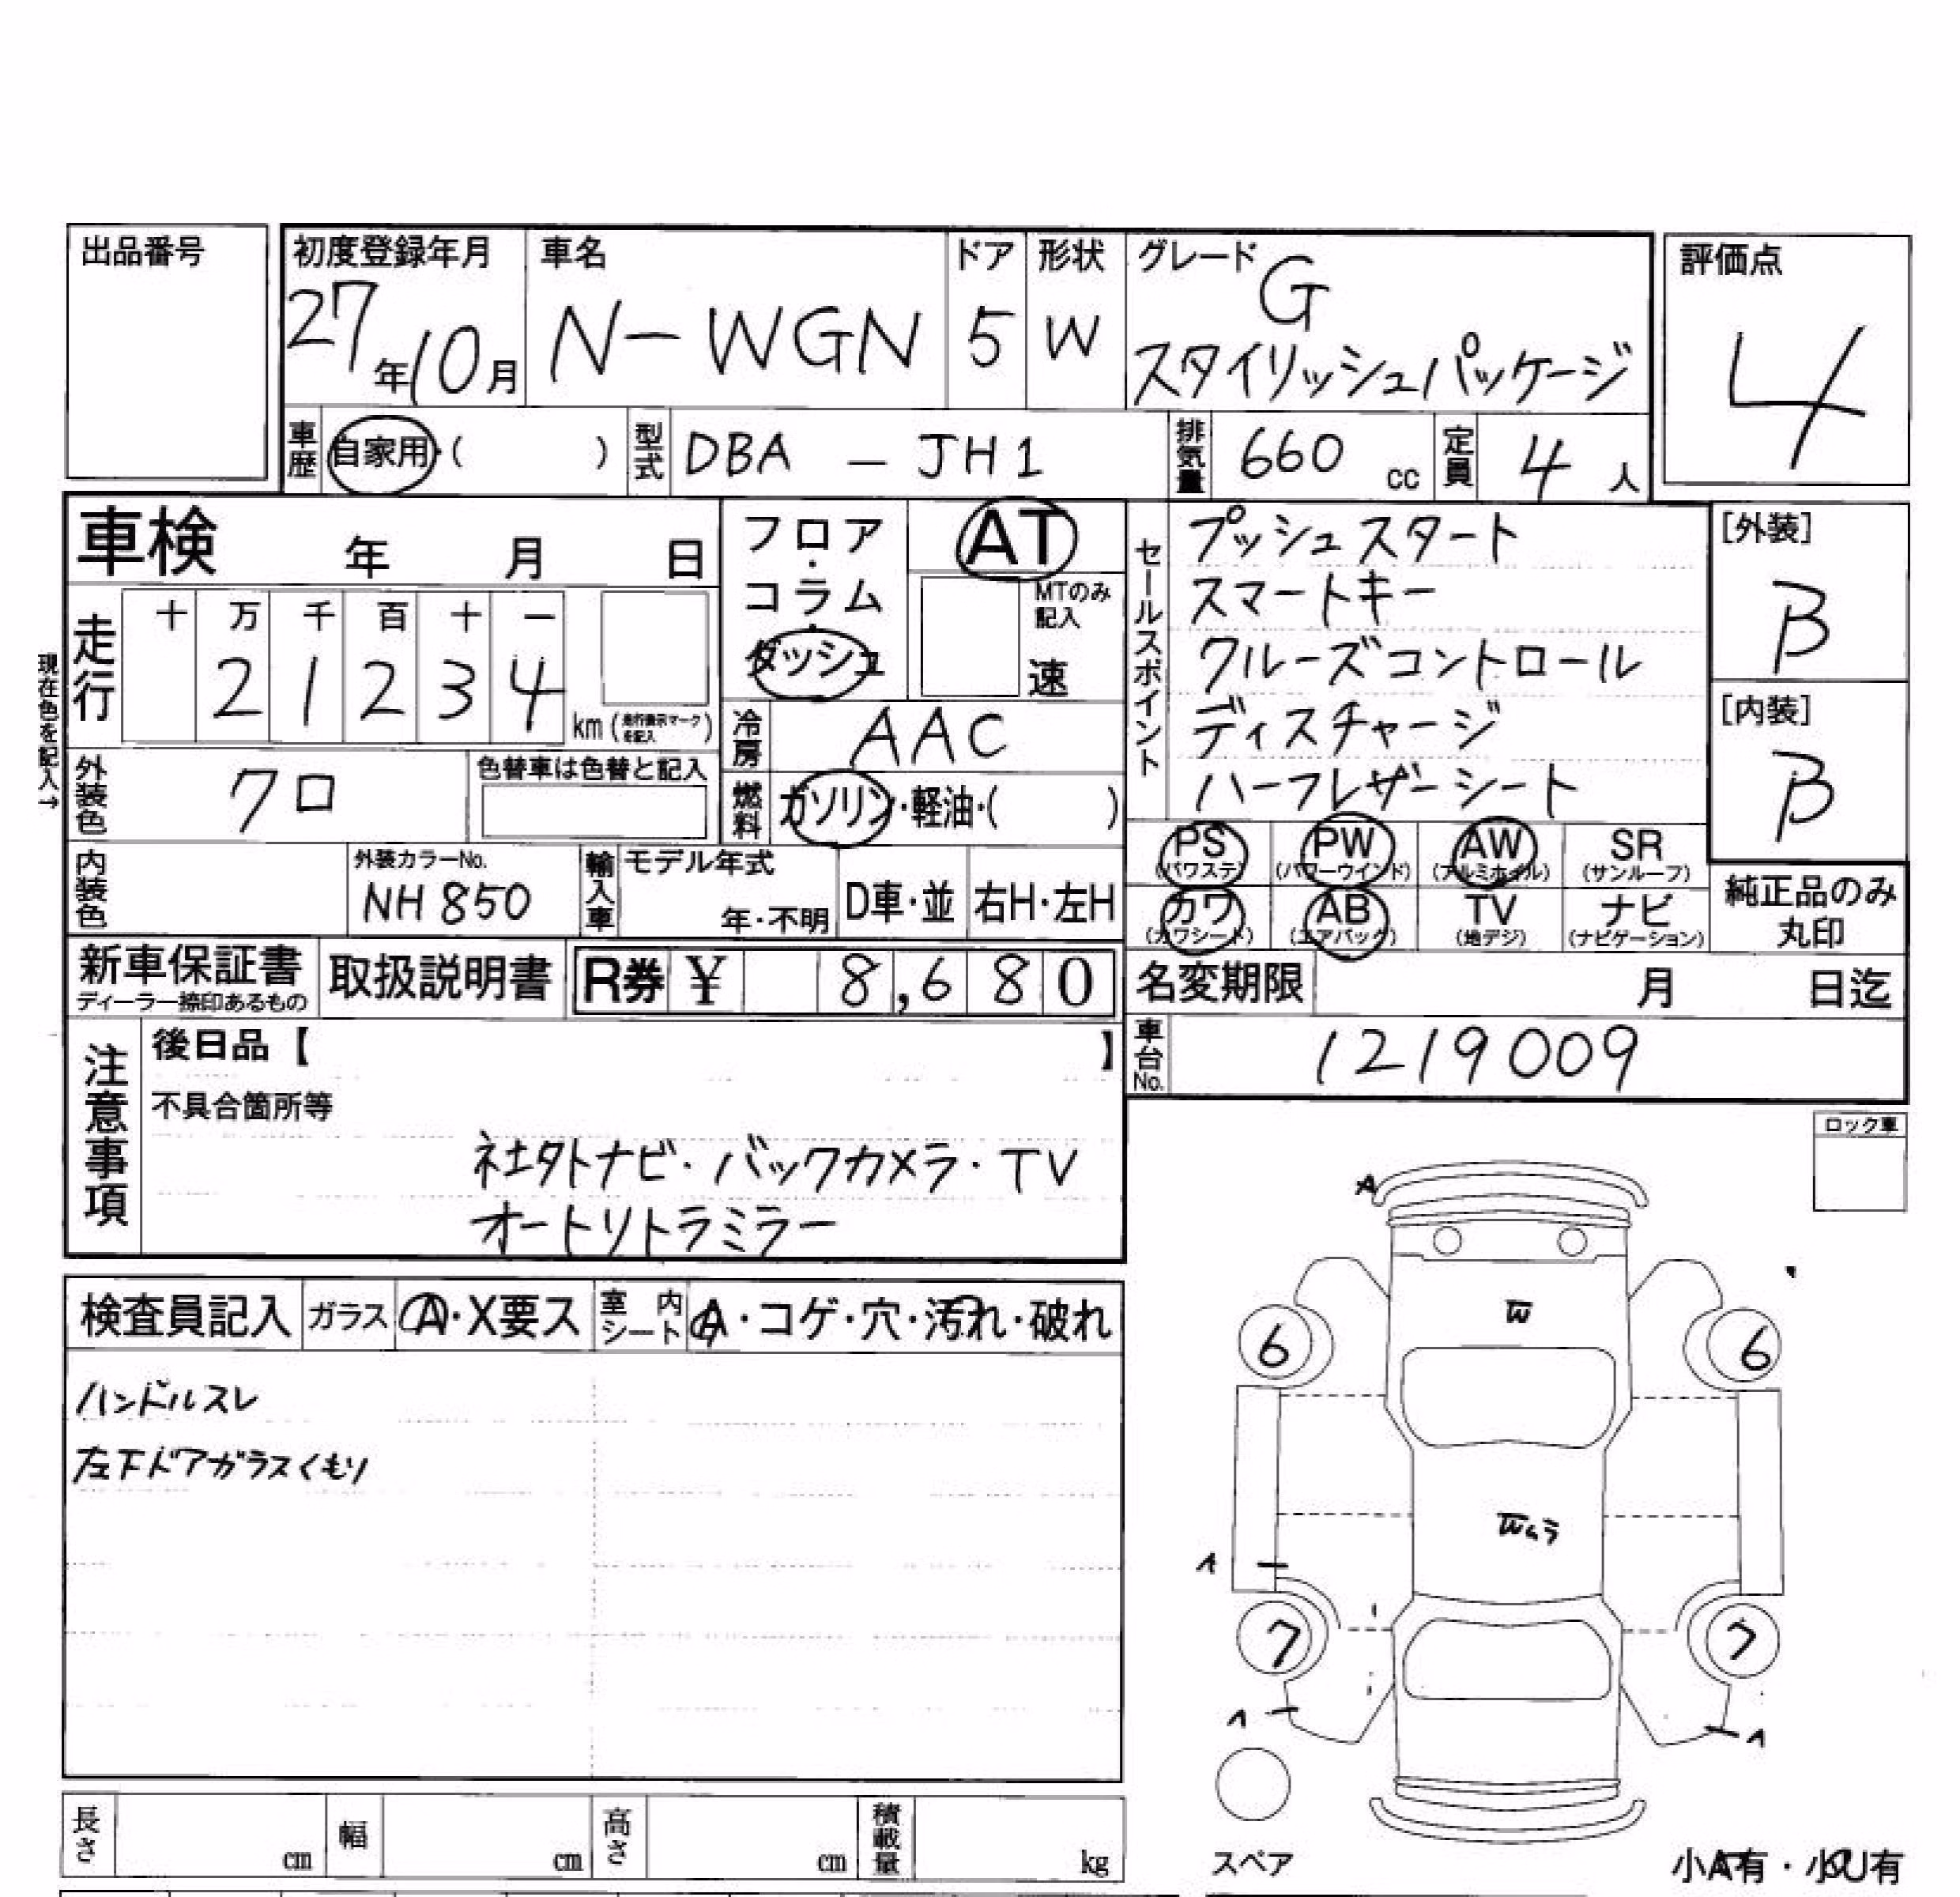 出品番号
初度登録年月
27年10月
車名
N-WGN
ドア
5
形状
W
グレード
G
スタイリッシュパッケージ
評価点
4
車歴
自家用・( )
型式
DBA - JH1
排気量
660 cc
定員
4 人
車検 年 月 日
フロア・コラム・ダッシュ
AT
MTのみ記入
速
セールスポイント
プッシュスタート
スマートキー
クルーズコントロール
ディスチャージ
ハーフレザーシート
[外装]
B
[内装]
B
現在色を記入→
走行
十 万 千 百 十 一
2 1 2 3 4
km (走行表示マークを記入)
冷房
AAC
外装色
クロ
色替車は色替と記入
燃料
ガソリン・軽油・( )
PS (パワステ)
PW (パワーウインド)
AW (アルミホイル)
SR (サンルーフ)
カワ (カワシート)
AB (エアバック)
TV (地デジ)
ナビ (ナビゲーション)
純正品のみ丸印
内装色
外装カラーNo.
NH850
輸入車
モデル年式
年・不明
D車・並
右H・左H
新車保証書
ディーラー捺印あるもの
取扱説明書
R券 ¥ 8,680
名変期限 月 日迄
車台No.
1219009
注意事項
後日品【 】
不具合箇所等
社外ナビ・バックカメラ・TV
オートリトラミラー
ロック車
検査員記入
ガラス
A・X要ス
室内シート
A・コゲ・穴・汚れ・破れ
ハンドルスレ
左下ドアガラスくもり
A
W
6
6
Wムラ
7
7
スペア
小A有・小U有
長さ cm
幅 cm
高さ cm
積載量 kg